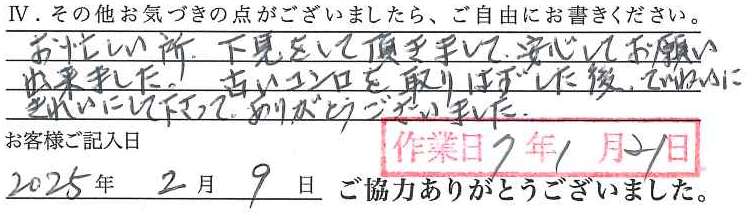 Ⅳ．その他お気づきの点がございましたら、ご自由にお書きください。
お忙しい所、下見をして頂き まして、安心してお願い
出来ました。 古いコンロを取りはずした後、ていねいに
きれいにして下さって、ありがとうございました。
お客様ご記入日
作業日 7年1月21日
2025年 2月 9日 ご協力ありがとうございました。